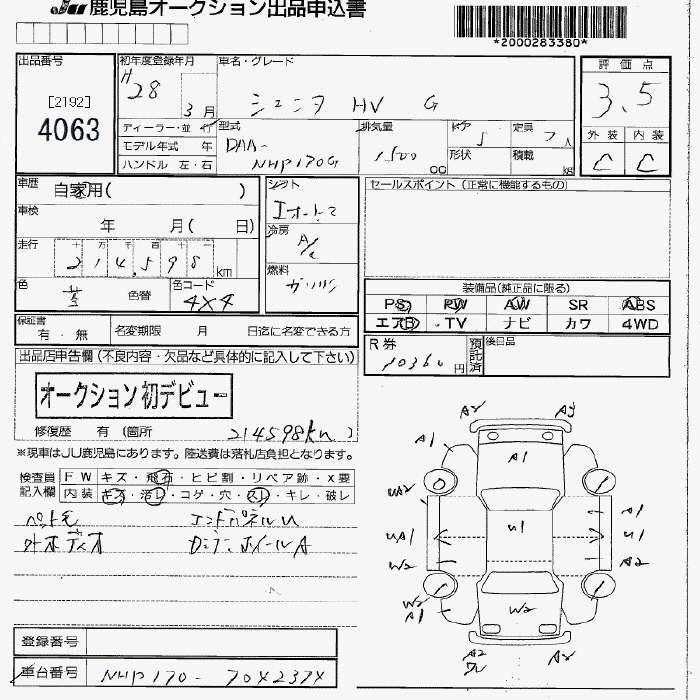 JU 鹿児島オークション出品申込書
*2000283380*
出品番号
[2192]
4063
初年度登録年月
H28 3月
車名・グレード
シエンタ HV G
評価点
3.5
外装 内装
C C
ディーラー・並行
モデル年式 年
ハンドル 左・右
型式
DAA-
NHP170G
排気量
1500 CC
ドア 5
形状
定員 7人
積載 kg
車歴 自家用( )
車検 年 月( 日)
走行 十万千百十一
214,598 km
色 色替
色コード
4X4
シフト
Iオートマ
冷房
A/C
燃料
ガソリン
セールスポイント (正常に機能するもの)
装備品(純正品に限る)
PS PW AW SR ABS
エアB TV ナビ カワ 4WD
保証書
有・無
名変期限 月 日迄に名変できる方
R券
10360円
預託済
後日品
出品店申告欄(不良内容・欠品など具体的に記入して下さい)
オークション初デビュー
修復歴 有 (箇所 214598km )
※現車はJU鹿児島にあります。陸送費は落札店負担となります。
検査員
記入欄
FW キズ・飛石・ヒビ割・リペア跡・X要
内装 キズ・汚レ・コゲ・穴・スレ・キレ・破レ
ペット毛 エンドパネルU
外ホディオ ホイールA
A2 A3
A1 A1
UA2 A1
UA1 U1 U1
W2 A2
W2
A1
W2
A2 A2
登録番号
車台番号 NHP170-70X237X